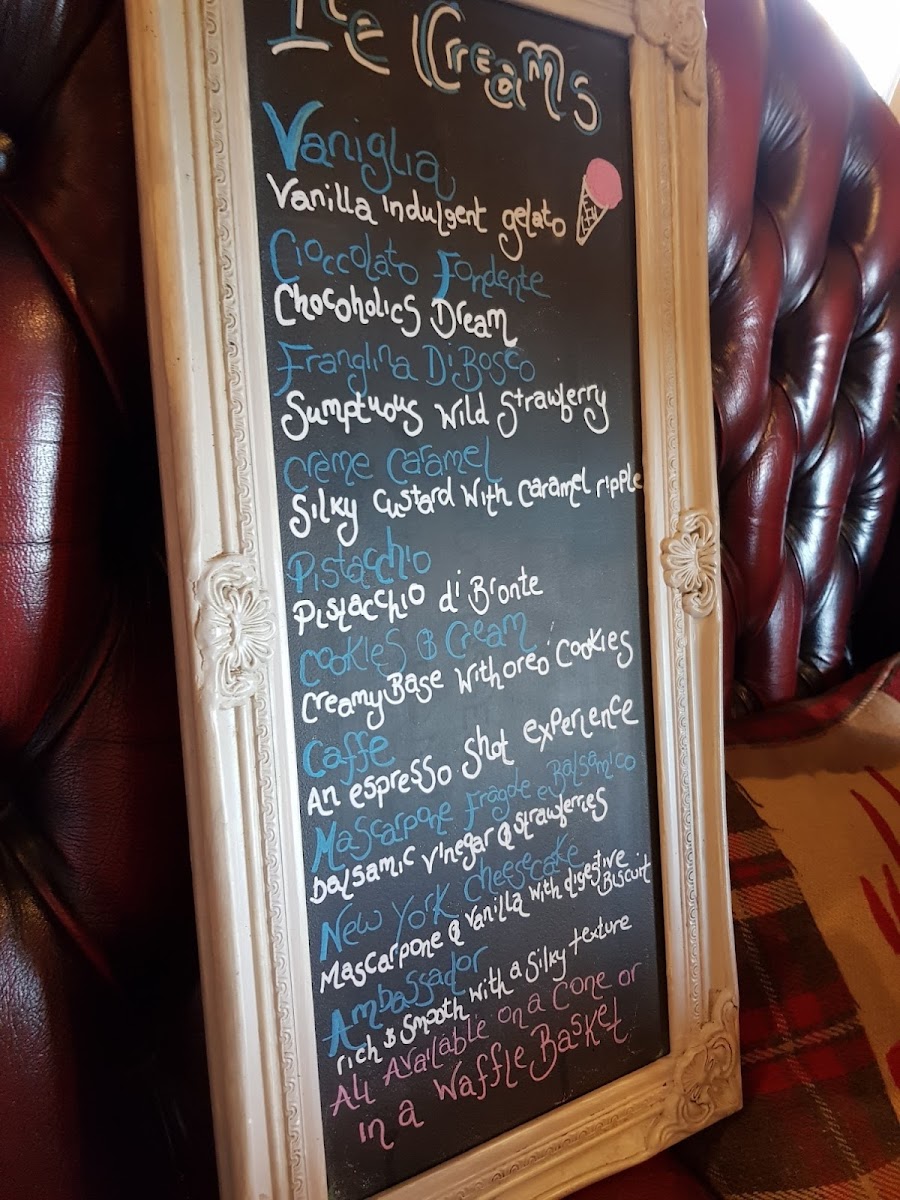 Ice Creams
Vaniglia
Vanilla indulgent gelato
Cioccolato Fondente
Chocoholics Dream
Franglina Di Bosco
Sumptuous Wild Strawberry
Crème Caramel
Silky Custard With Caramel ripple
Pistacchio
Pistacchio di Bronte
Cookies & Cream
Creamy Base With oreo Cookies
Caffe
An espresso shot experience
Mascarpone Fragole e Balsamico
balsamic vinegar & strawberries
New York Cheesecake
Mascarpone & vanilla with digestive Biscuit
Ambassador
rich & smooth with a silky texture
All Available on a Cone or
in a Waffle Basket